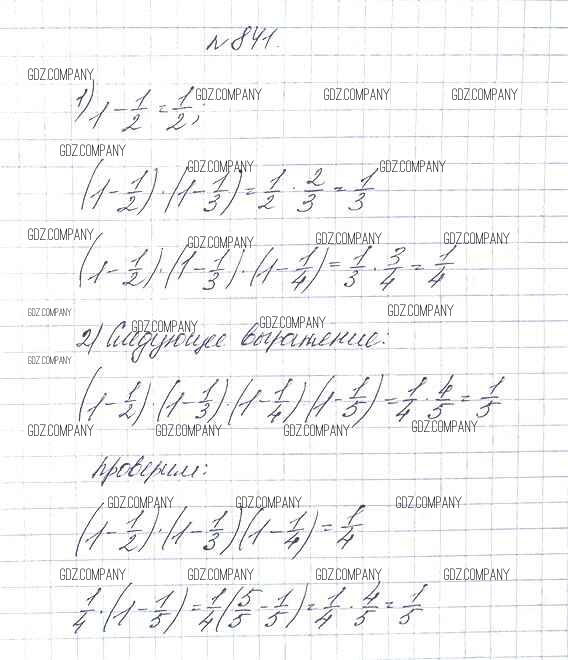 №841.
GDZ.COMPANY
1) 1 - 1/2 = 1/2; GDZ.COMPANY GDZ.COMPANY GDZ.COMPANY
GDZ.COMPANY GDZ.COMPANY GDZ.COMPANY
(1 - 1/2) · (1 - 1/3) = 1/2 · 2/3 = 1/3
GDZ.COMPANY GDZ.COMPANY GDZ.COMPANY GDZ.COMPANY
(1 - 1/2) · (1 - 1/3) · (1 - 1/4) = 1/3 · 3/4 = 1/4
GDZ.COMPANY GDZ.COMPANY GDZ.COMPANY GDZ.COMPANY
2) Следующее выражение:
GDZ.COMPANY
(1 - 1/2) · (1 - 1/3) · (1 - 1/4) (1 - 1/5) = 1/4 · 4/5 = 1/5
GDZ.COMPANY GDZ.COMPANY GDZ.COMPANY GDZ.COMPANY
проверим:
GDZ.COMPANY GDZ.COMPANY GDZ.COMPANY
(1 - 1/2) · (1 - 1/3) (1 - 1/4) = 1/4
GDZ.COMPANY GDZ.COMPANY GDZ.COMPANY GDZ.COMPANY
1/4 · (1 - 1/5) = 1/4 (5/5 - 1/5) = 1/4 · 4/5 = 1/5